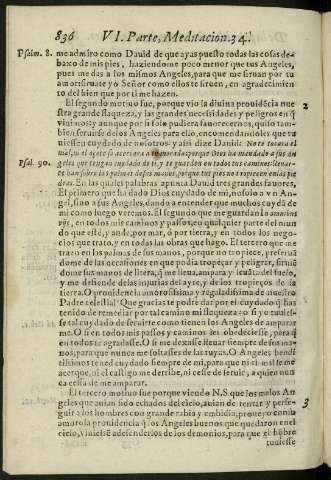 836 VI. Parte, Meditacion. 34.
Psalm. 8. me admiro como Dauid de que ayas puesto todas las cosas de-
baxo de mis pies, haziendome poco menor que tus Angeles,
pues me das a los mismos Angeles, para que me siruan por tu
amor: siruate yo Señor como ellos te siruen, en agradecimien
to del bien que por ti me hazen.
El segundo motiuo fue, porque vio la diuina prouidẽcia nue
stra grande flaqueza, y las grandes necessidades y peligros en q̃
viuimos: y aunque por si solo pudiera fauorecernos, quiso tam-
bien seruirse de los Angeles para ello, encomendandoles que tu
uiessen cuydado de nosotros: y assi dize Dauid: No te tocara el
mal, ni el açote se acercara a tu morada: porque Dios ha mandado a sus An
Psal. 90. geles que tengan cuydado de ti, y te guarden en todos tus caminos: lleuar-
te han sobre las palmas de sus manos, porque tus pies no tropiecen en las pie
dras. En las quales palabras apunta Dauid tres grandes fauores.
El primero que ha dado Dios cuydado de mi, no solo a vn An-
gel, sino a sus Angeles, dando a entender que muchos cuydã de
mi como luego veremos. El segundo que me guardan in omnibus
vijs, en todos mis caminos y passos, en qualquier parte del mun
do que esté, y ande, por mar, ò por tierra, y en todos los nego-
cios que trato, y en todas las obras que hago. El tercero que me
traen en las palmas de sus manos, porque no tropiece, preseruã
dome de las occasiones en que podia tropeçar y peligrar, siruiẽ
dome sus manos de litera, q̃ me lleua, ampara y leuãta del suelo,
y me defiende de las injurias del ayre, y de los tropieços de la
tierra. O prouidencia amorosissima y regaladissima de nuestro
Padre celestial! Que gracias te podrè dar por el cuydado q̃ has
tenido de remediar por tal camino mi flaqueza? o si yo tuuies-
se tal cuydado de seruirte como tienen los Angeles de amparar
me. O si en todos mis passos y caminos les obedeciesse, para q̃
en todos te agradasse. O si me dexasse lleuar siempre de sus ma-
nos, para que nunca me soltasse de las tuyas. O Angeles bendi
tissimos tened cuydado siempre de mi, para que ni el mal se me
acerque, ni el castigo me derribe, ni cesse de seruir, a quien nun
ca cessa de me amparar.
El tercero motiuo fue porque viendo N.S. que los malos An
geles que auian sido echados del cielo, auian de tentar y perse-
guir a los hombres con grande rabia y embidia, proueyó en niu
amorosa prouidencia q̃ los Angeles buenos que quedaron en el
cielo, viniessẽ a defenderlos de los demonios, para que el hõbre
tuuiesse
2
3